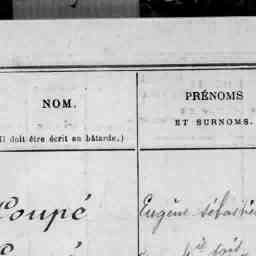 NOM.
PRÉNOMS
ET SURNOMS.
Il doit être écrit en bâtarde.)
Coupé
Eugène Sébastie